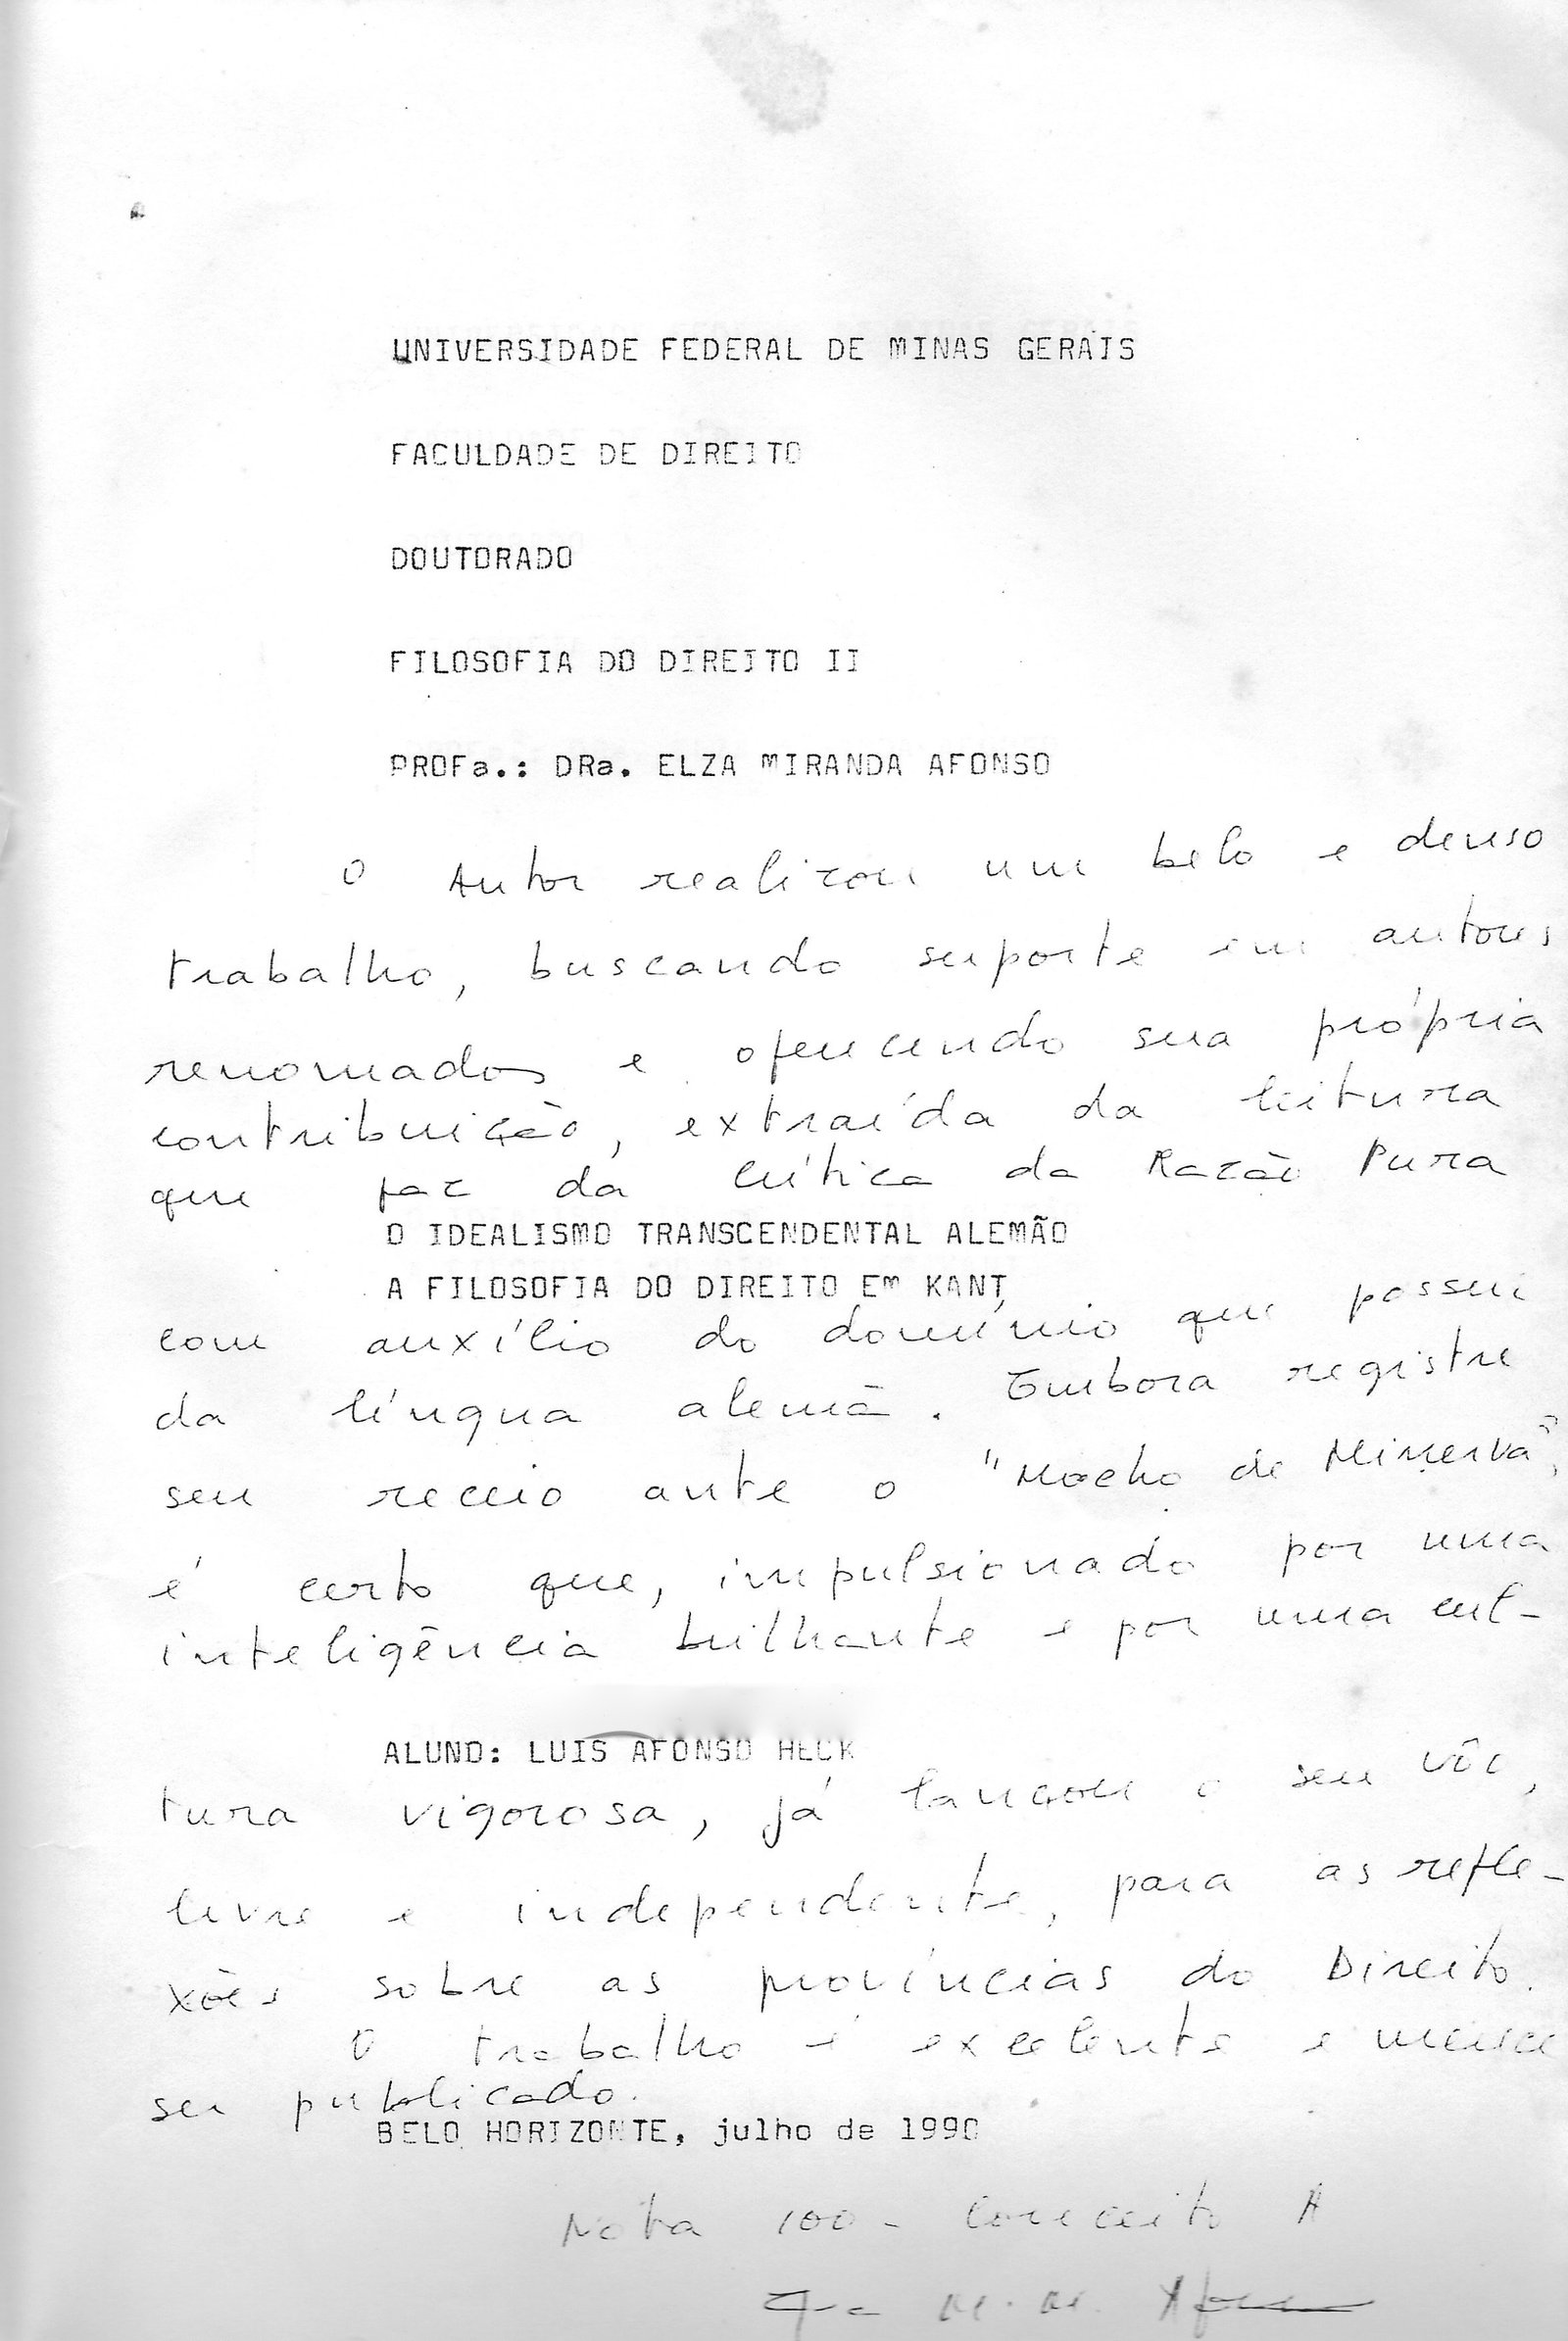 UNIVERSIDADE FEDERAL DE MINAS GERAIS
FACULDADE DE DIREITO
DOUTORADO
FILOSOFIA DO DIREITO II
PROFa.: DRa. ELZA MIRANDA AFONSO
O Autor realizou um belo e denso
trabalho, buscando suporte em autores
renomados e oferecendo sua própria
contribuição, extraída da leitura
que faz da Crítica da Razão Pura
O IDEALISMO TRANSCENDENTAL ALEMÃO
A FILOSOFIA DO DIREITO EM KANT
com auxílio do domínio que possui
da língua alemã. Embora registre
seu receio ante o "Mocho de Minerva",
é certo que, impulsionado por uma
inteligência brilhante e por uma cul-
ALUNO: LUIS AFONSO HECK
tura vigorosa, já lançou o seu vôo,
livre e independente, para as refle-
xões sobre as províncias do Direito.
O trabalho é excelente e merece
ser publicado.
BELO HORIZONTE, julho de 1990
Nota 100 - Conceito A